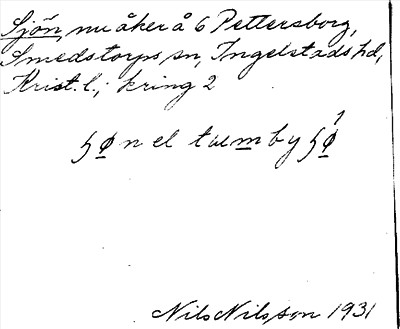 Sjön, nu åker å 6 Pettersborg,
Smedstorps sn, Ingelstads hd,
Krist. l.; kring 2
ɧøn el tumbyɧø¹
Nils Nilsson 1931